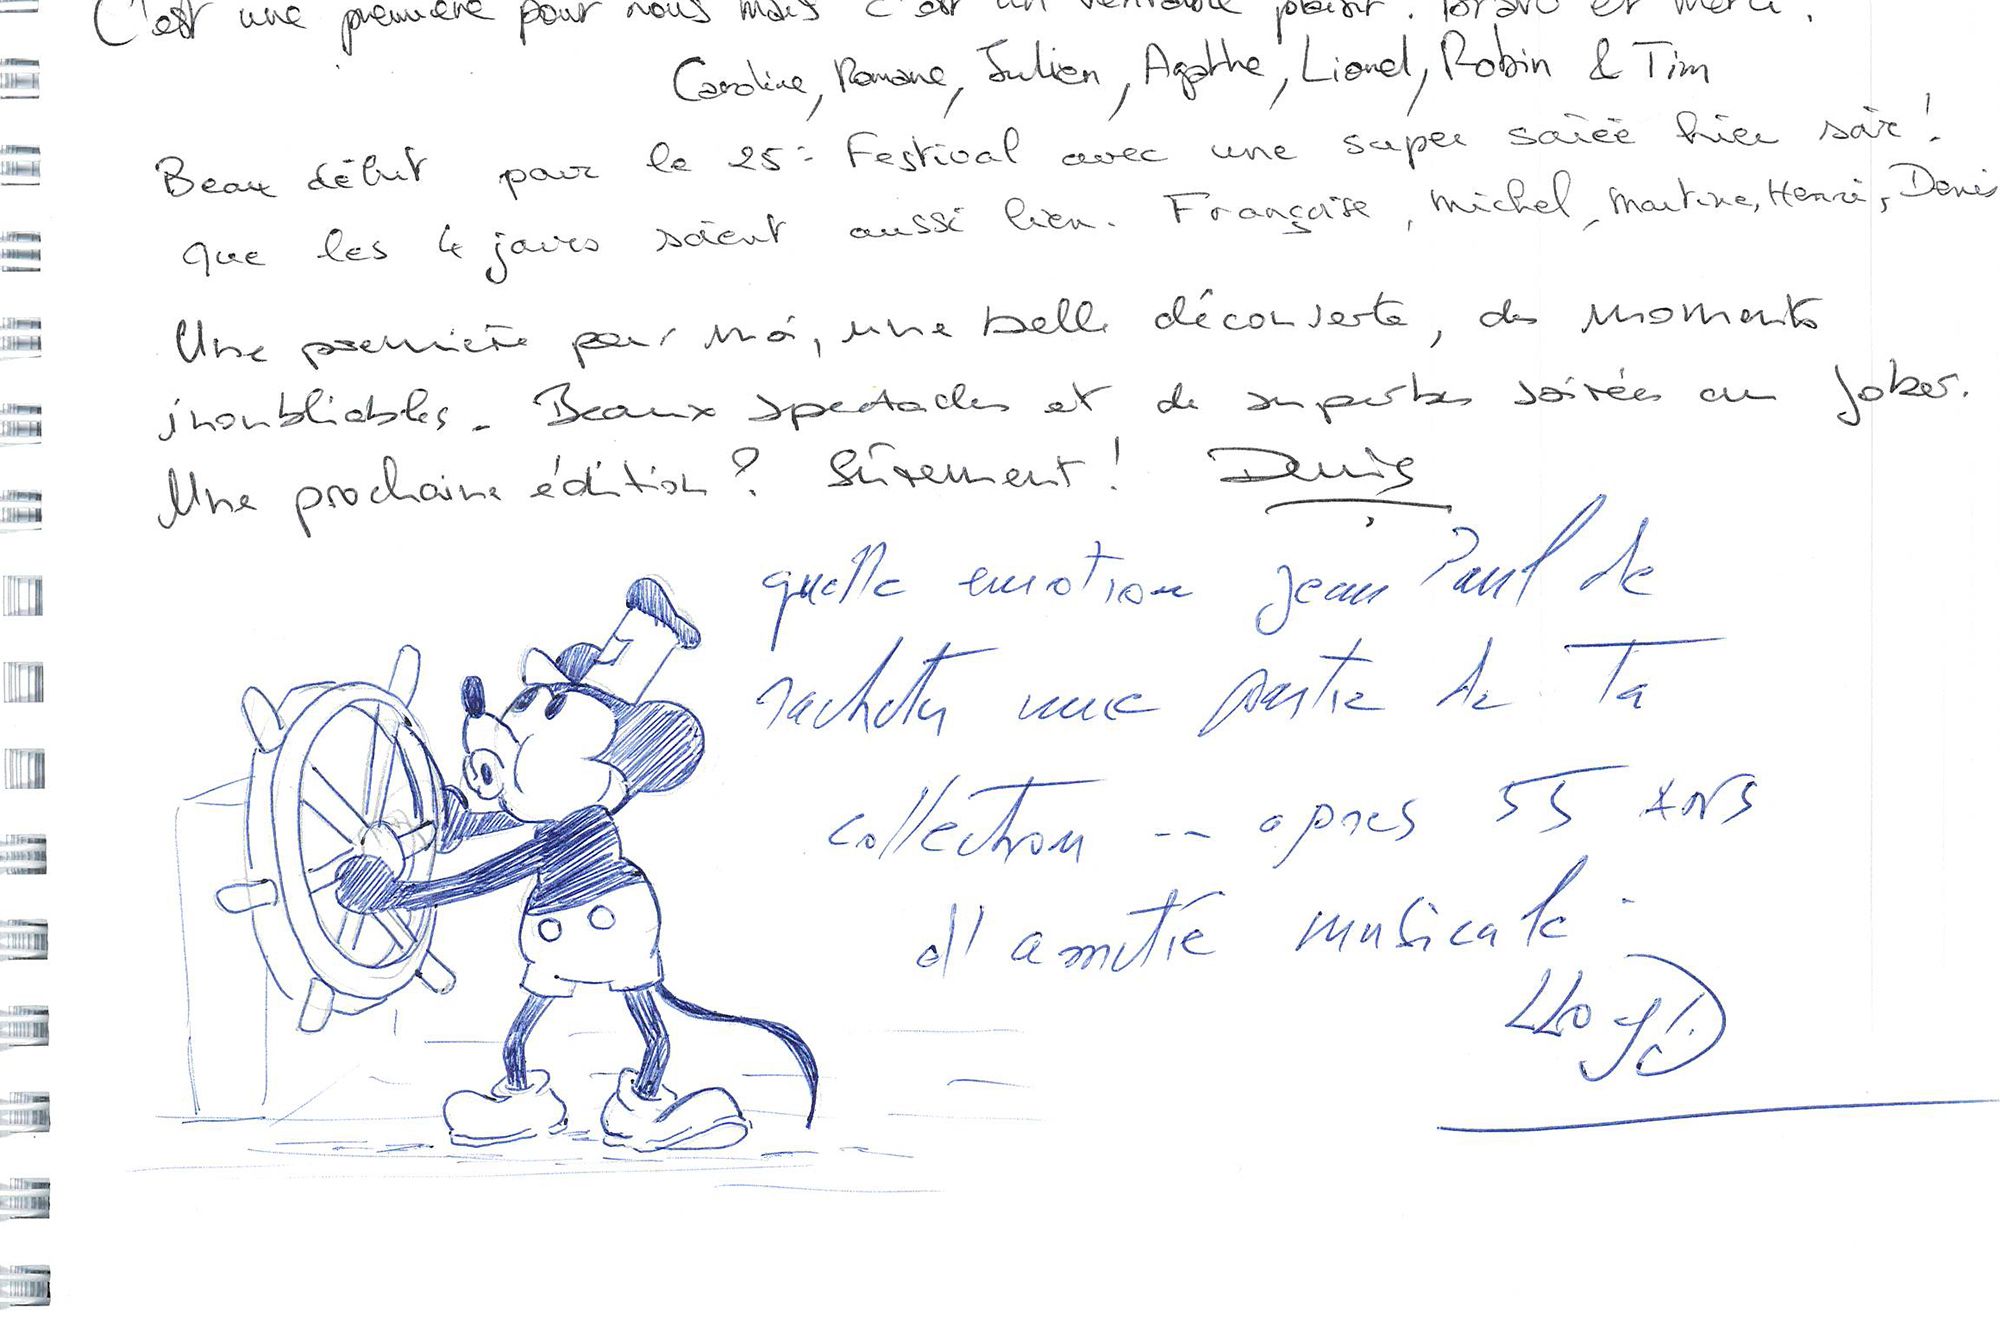 C'est une première pour nous mais c'est un véritable plaisir. Bravo et merci.
Caroline, Romane, Julien, Agathe, Lionel, Robin & Tim
Beau début pour le 25e Festival avec une super soirée hier soir!
que les 4 jours soient aussi bien. Françoise, Michel, Martine, Henri, Denis
Une première pour moi, une belle découverte, des moments
inoubliables. Beaux spectacles et de superbes soirées au Joker.
Une prochaine édition? Sûrement! Denis
quelle emotion jean Paul de
racheter une partie de Ta
collection -- apres 55 ANS
d'amitié musicale.
LLoyd